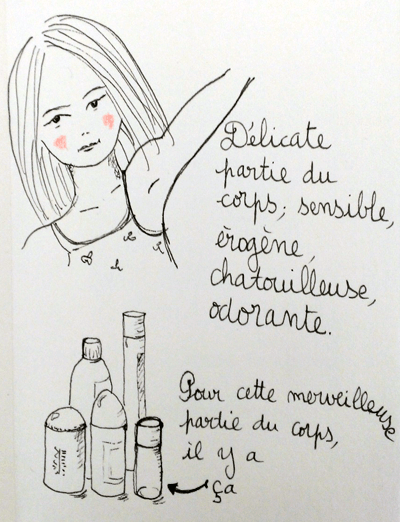 Délicate
partie du
corps; sensible,
érogène,
chatouilleuse,
odorante.
Pour cette merveilleuse
partie du corps,
il y a
ça